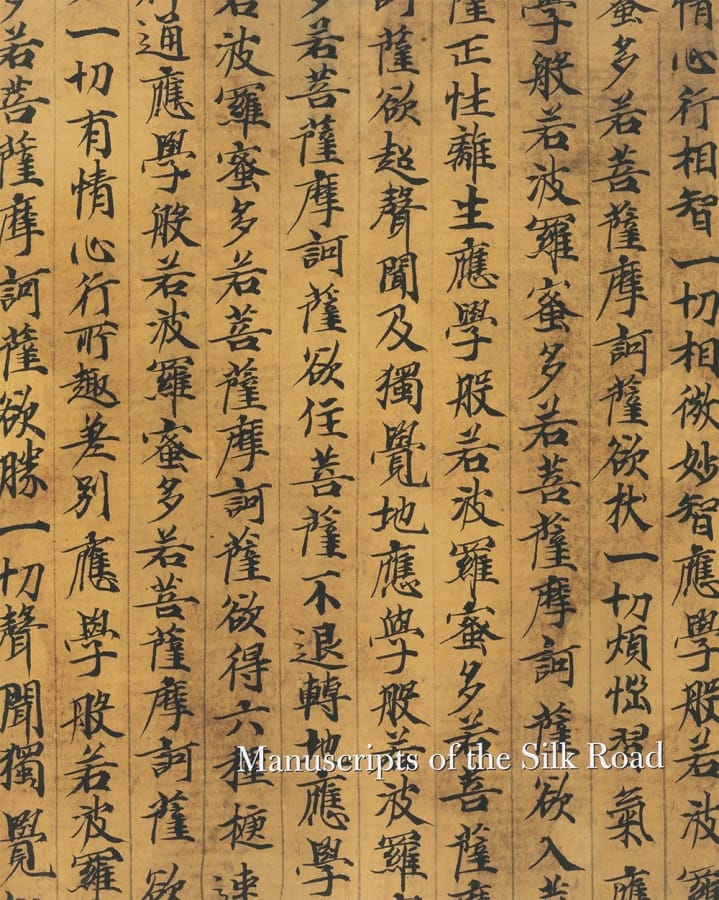 情心行相智一切相微妙智應學般若波羅
蜜多若菩薩摩訶薩欲拔一切煩惱習氣應
學般若波羅蜜多若菩薩摩訶薩欲入菩
薩正性離生應學般若波羅蜜多若菩薩摩
訶薩欲超聲聞及獨覺地應學般若波羅
多若菩薩摩訶薩欲住菩薩不退轉地應學
若波羅蜜多若菩薩摩訶薩欲得六種捷速
通應學般若波羅蜜多若菩薩摩訶薩欲
一切有情心行所趣差別應學般若波羅
若菩薩摩訶薩欲勝一切聲聞獨覺
Manuscripts of the Silk Road